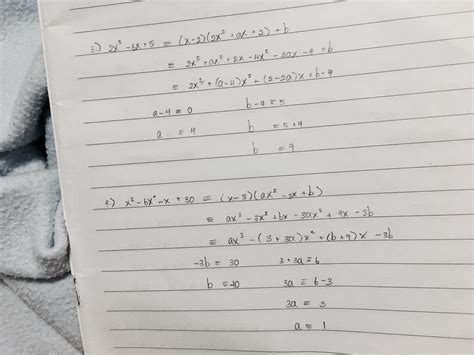 3.) 2x³ - 6x + 5 ≡ (x-2)(2x² + ax + 2) + b
≡ 2x³ + ax² + 2x - 4x² - 2ax - 4 + b
≡ 2x³ + (a-4)x² + (2-2a)x + b-4
a-4 = 0 b-4 = 5
a = 4 b = 5+4
b = 9
4.) x³ - 6x² - x + 30 ≡ (x-3)(ax² - 3x + b)
≡ ax³ - 3x² + bx - 3ax² + 9x - 3b
≡ ax³ - (3 + 3a)x² + (b+9)x - 3b
-3b = 30 3 + 3a = 6
b = -10 3a = 6-3
3a = 3
a = 1